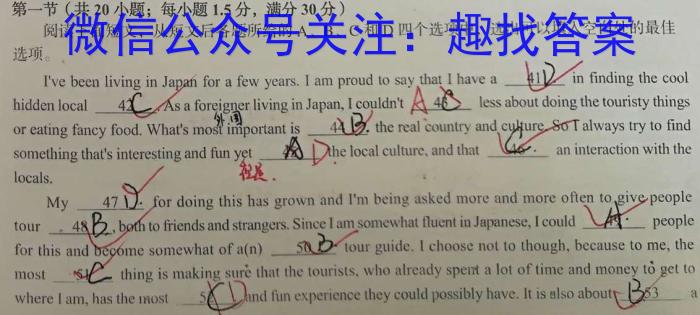 第一节（共 20 小题；每小题 1.5 分，满分 30 分）
微信公众号关注：趣找答案
选项。
I've been living in Japan for a few years. I am proud to say that I have a 41 D in finding the cool
hidden local 42 C. As a foreigner living in Japan, I couldn't A 43 less about doing the touristy things
or eating fancy food. What's most important is 44 B. the real country and culture. So I always try to find
something that's interesting and fun yet D the local culture, and that an interaction with the
locals.
My 47 D. for doing this has grown and I'm being asked more and more often to give people
tour 48 B, both to friends and strangers. Since I am somewhat fluent in Japanese, I could A people
for this and become somewhat of a(n) 50 B. tour guide. I choose not to though, because to me, the
most 51 C thing is making sure that the tourists, who already spent a lot of time and money to get to
where I am, has the most 5 D and fun experience they could possibly have. It is also about B 53 a